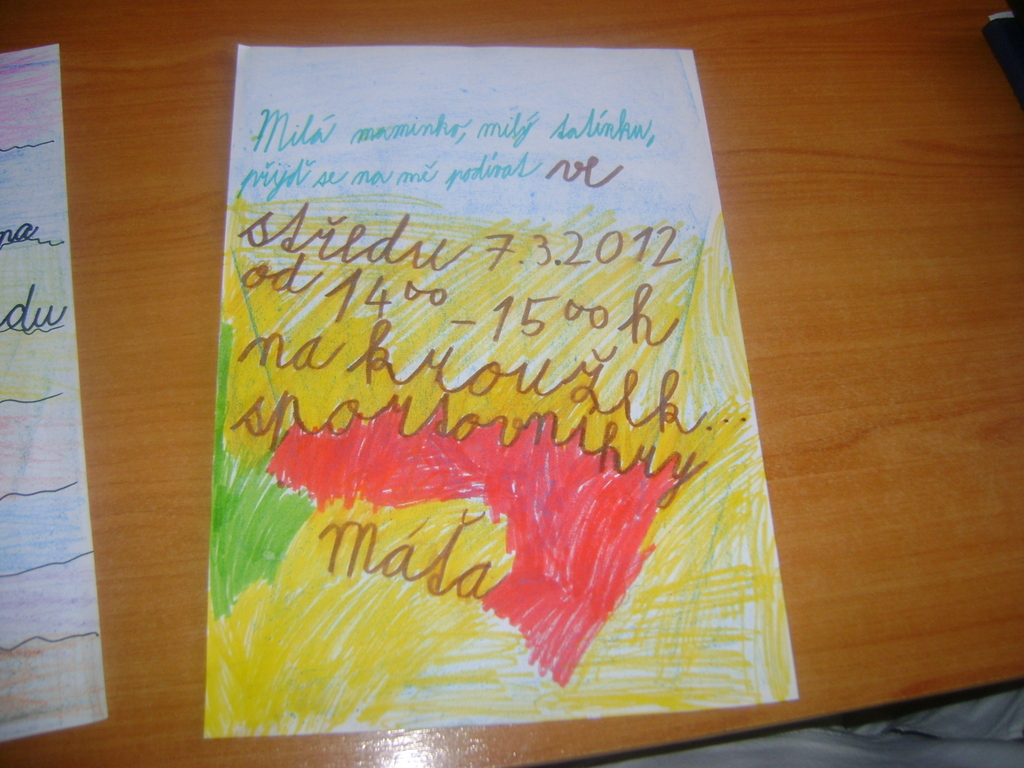 na
du
Milá maminko, milý tatínku,
přijď se na mě podívat ve
středu 7.3.2012
od 14⁰⁰ - 15⁰⁰ h
na kroužek...
sportovní hry
Máťa